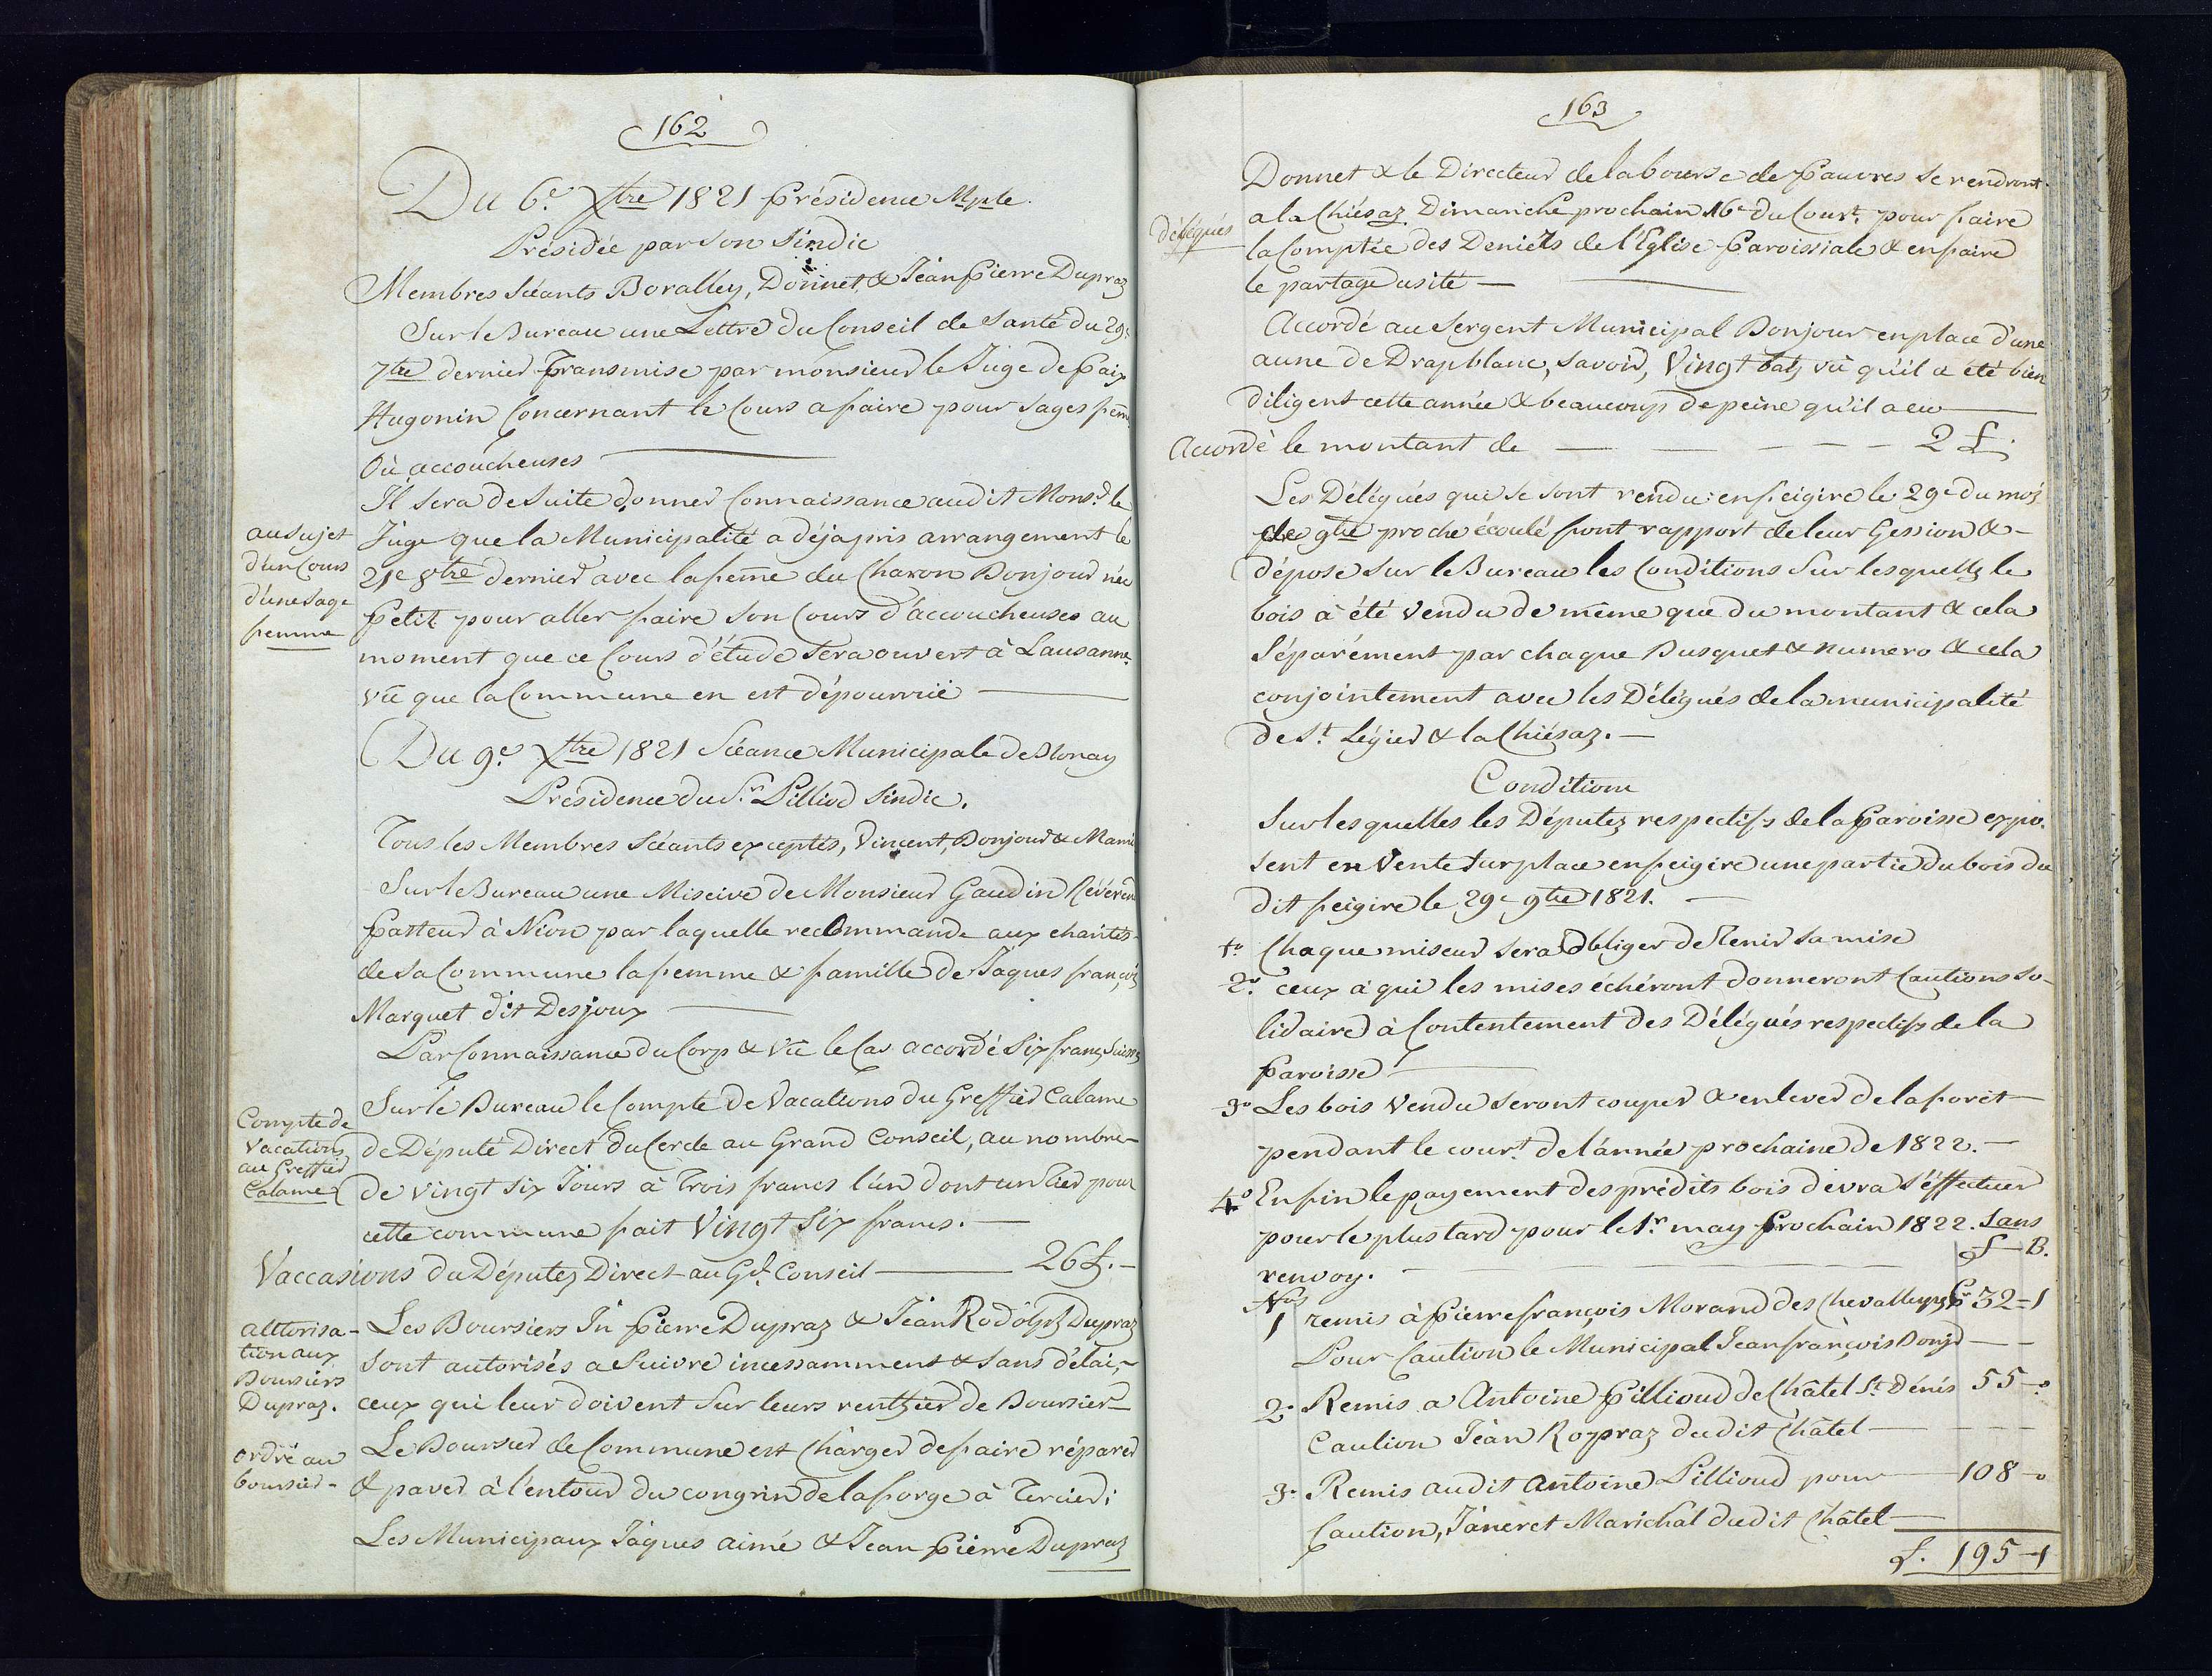 162
Du 6.e Xbre 1821 Présidence Mple.
Présidée par son Sindic
Membres Séants Boralley, Donnet, & Jéan Pierre Dupraz
Sur le Bureau une Lettre du Conseil de Santé du 29.e
7bre dernier Transmise par monsieur le Juge de Paix
Hugonin Concernant le Cours a faire pour sages fem̄e
Où accoucheuses
Il sera de suite donner Connaissance audit Monsr. le
Juge que la Municipalité a déja pris arrangement le
21e 8bre dernier avec la fem̄e du Charon Bonjour née
Petit pour aller faire son Cours d'accoucheuses au
moment que ce Cours d'étude sera ouvert à Lausanne.
vû que la Commune en est dépourvuë
au sujet
d'un Cours
d'une sage
femme
Du 9.e Xbre 1821 Séance Municipale de Blonay
Présidence du Sr. Pilliod Sindic.
Tous les Membres Séants exceptés, Vincent, Bonjour & Mamin
Sur le Bureau une Miscive de Monsieur Gaudin Révérend
Pasteur à Nion par laquelle recommande aux charités
de sa Commune la femme & famille de Jaques françois
Marquet dit Desjoux
Par Connaissance du Corp & Vû le Cas accordé Six francs Suisses
Sur le Bureau le Compte de Vacations du Greffier Calame
de Député Direct du Cercle au Grand Conseil, au nombre
de vingt six Jours à Trois francs l'un dont un tier pour
cette commune fait Vingt Six francs.
Compte de
Vacations
au Greffier
Calame
Vaccasions du Députez Direct au Gd. Conseil 26 £.
Les Boursiers Jn Pierre Dupraz & Jéan Rodolph Dupraz
sont autorisés a suivre incessamment & sans délai,
ceux qui leur doivent sur leurs rentzier de Boursier
attorisa-
tion aux
Boursiers
Dupraz.
Le Boursier de Commune est Chargé de faire réparer
& paver à l'entour du congrin de la forge à Tercier;
ordre au
boursier-
Les Municipaux Jâques aimé & Jean Pierre Dupraz
163
Donnet & le Directeur de la bourse de Pauvres se rendront
a la Chiésaz Dimanche prochain 16e du Court. pour faire
la Comptée des Deniers de l'Eglise Paroissiale & en faire
le partage usité
délégués
Accordé au Sergent Municipal Bonjour en place d'une
aune de Drap blanc, savoir, Vingt batz vû qu'il a été bien
diligent cette année & beaucoup de peine qu'il a eu
Accordé le montant de 2 £.
Les Délégués qui se sont rendu en feigire le 29e du mois
de 9bre proche écoulé font rapport de leur Gession &
dépose sur le Bureau les Conditions sur lesquelles le
bois à été vendu de même que du montant & cela
séparément par chaque Busquet & numero & cela
conjointement avec les Délégués de la municipalité
de St. Légier & la Chiésaz.
Conditions
sur lesquelles les Députez respectifs de la Paroisse expo.
sent en vente sur place en feigire une partie du bois du
dit feigire le 29e 9bre 1821.
1.o Chaque miseur sera obliger de Tenir sa mise
2.o ceux à qui les mises échéront donneront Cautions so-
lidaire à Contentement des Délégués respectifs de la
Paroisse
3o Les bois vendu seront couper & enlever de la forêt
pendant le court. de l'année prochaine de 1822.
4o Enfin le payement des prédits bois devra s'éffectuer
pour le plus tard pour le 1r. may Prochain 1822. Sans
renvoy.
£ B.
Nos
1 remis à Pierre françois Morand des Chevalleyres Pr 32=1
Pour Caution le Municipal Jean françois Bonjr
2. Remis a Antoine Pillioud de Châtel St. Dénis 55-o
Caution Jéan Roypraz du dit Châtel
3. Remis audit Antoine Pillioud pour 108-o
Caution, Janeret Marichal du dit Châtel
£. 195-1